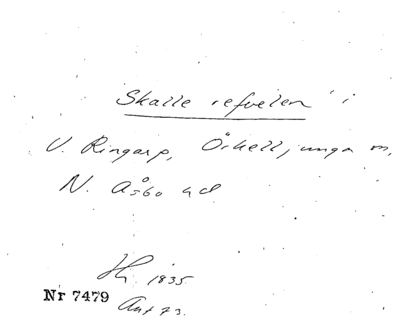 Skalle refvelen" i
V. Ringarp, Örkelljunga m,
N. Åsbo hd
1835
Nr 7479
Ant 73.